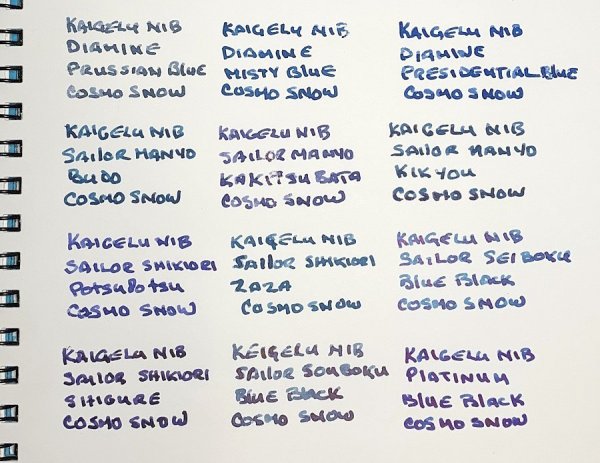 KAIGELU NIB
DIAMINE
PRUSSIAN BLUE
COSMO SNOW
KAIGELU NIB
DIAMINE
MISTY BLUE
COSMO SNOW
KAIGELU NIB
DIAMINE
PRESIDENTIAL BLUE
COSMO SNOW
KAIGELU NIB
SAILOR MANYO
BUDO
COSMO SNOW
KAIGELU NIB
SAILOR MANYO
KAKITSUBATA
COSMO SNOW
KAIGELU NIB
SAILOR MANYO
KIKYOU
COSMO SNOW
KAIGELU NIB
SAILOR SHIKIORI
POTSUPOTSU
COSMO SNOW
KAIGELU NIB
SAILOR SHIKIORI
ZAZA
COSMO SNOW
KAIGELU NIB
SAILOR SEIBOKU
BLUE BLACK
COSMO SNOW
KAIGELU NIB
SAILOR SHIKIORI
SHIGURE
COSMO SNOW
KEIGELU NIB
SAILOR SOUBOKU
BLUE BLACK
COSMO SNOW
KAIGELU NIB
PLATINUM
BLUE BLACK
COSMO SNOW